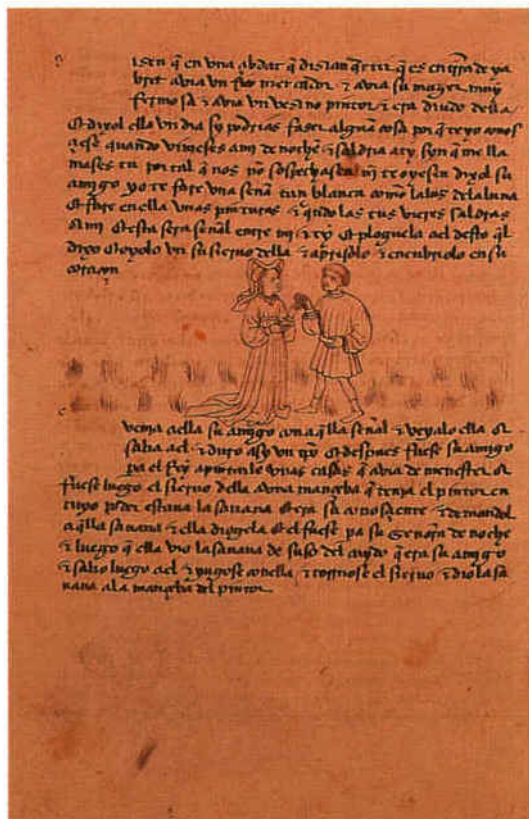 isen q̃ en vna çibdat q̃ dizian q̃ es en trra de
avia un rico mercador & avia su muger muy
fermosa & avia un vesino pintor & era drudo della
Et dixol ella un dia sy podrias faser alguna cosa por q̃ te yo conos
çiese quando vinieses a mi de noche & saldria a ty syn q̃ me lla
mases en tu portal q̃ nos no sospechasen nj te oyesen dixol su
amigo yo te fare una señal tan blanca como la lus dela luna
& fare en ella unas pinturas & q̃ndo las tus vieres saldras
a mi & esta sera señal entre mi & ty & ploguela a el desto q̃l
dixo & oyolo un su sieruo della & aprisolo & encubriolo en su
coraçon
venia a ella su amigo con aq̃lla señal & veyalo ella &
salia a el & duro asy un & despues fuese su amigo
pa el Rey apintarle unas casas q̃ avia de menester &
fuese luego el sieruo della a una mançeba q̃ tenja el pintor en
cuyo poder estaua la sauana & era su conosçente & demandol
aq̃lla sauana & ella diogela & el fuese pa su señora de noche
& luego q̃ ella vio la sauana de suso del cuydo q̃ era su amigo
& salio luego a el & yugose con ella & tornose el sieruo & dio la sa
uana a la mançeba del pintor